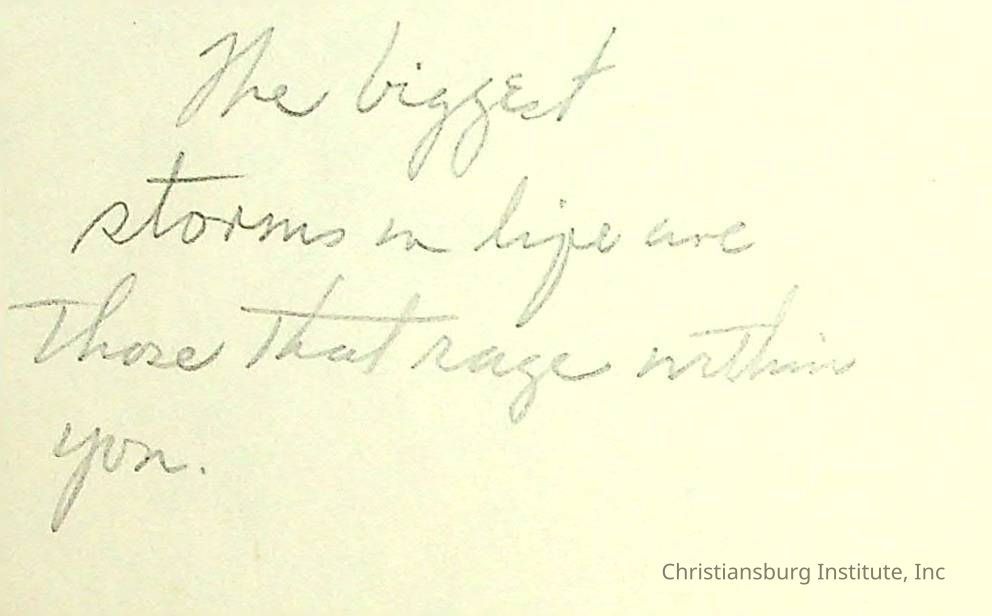 The biggest
storms in life are
Those that rage within
you.
Christiansburg Institute, Inc